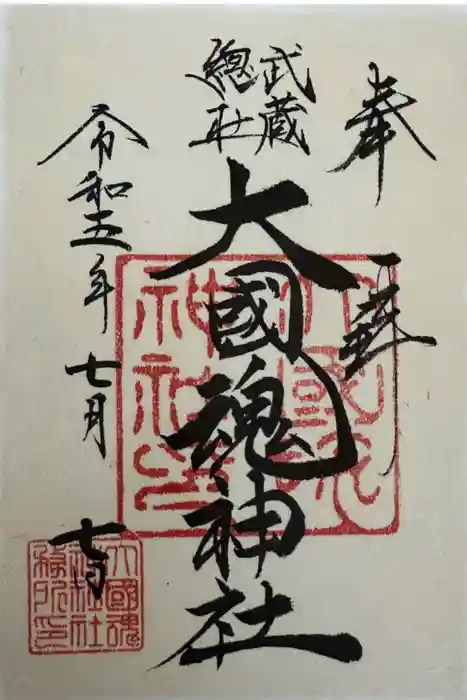 奉拝
武蔵
總社
大國魂神社
令和五年七月七日
大國魂
神社社
務所印